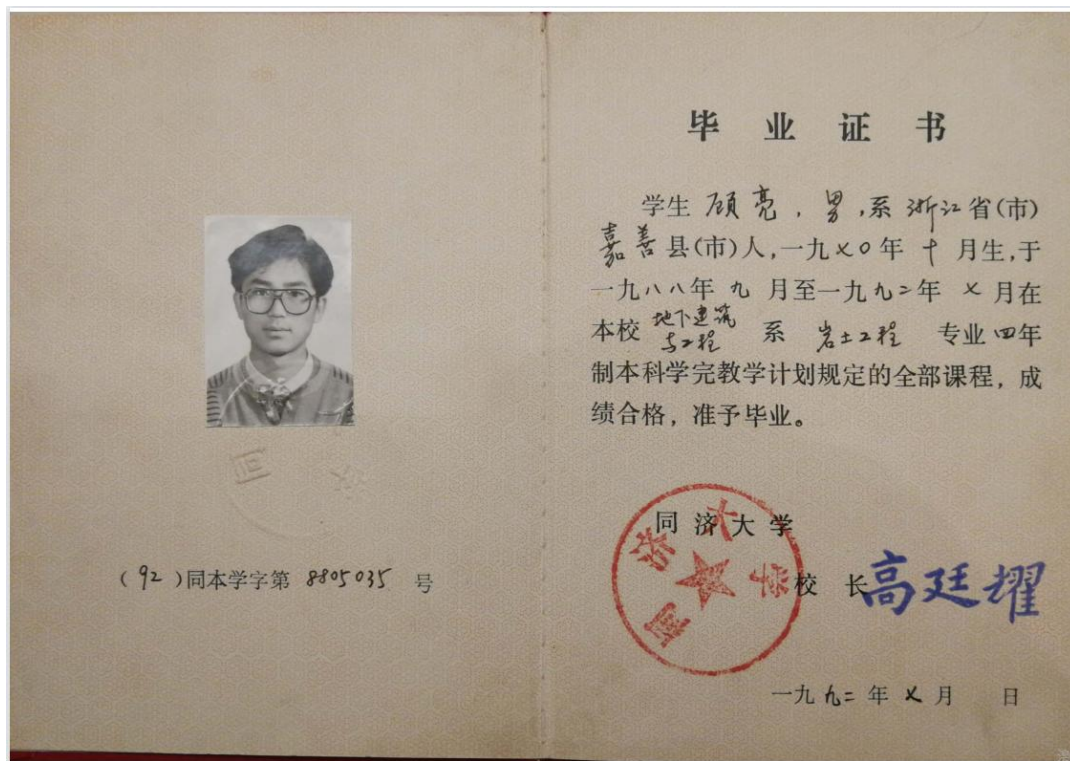 (92)同本学字第 8805035 号
毕业证书
学生 顾亮,男,系 浙江省(市)
嘉善县(市)人,一九七〇年 十 月生,于
一九八八年 九 月至一九九二年 七 月在
本校 地下建筑与工程 系 岩土工程 专业四年
制本科学完教学计划规定的全部课程,成
绩合格,准予毕业。
同济大学
同济大学
校长 高廷耀
一九九二年七月 日